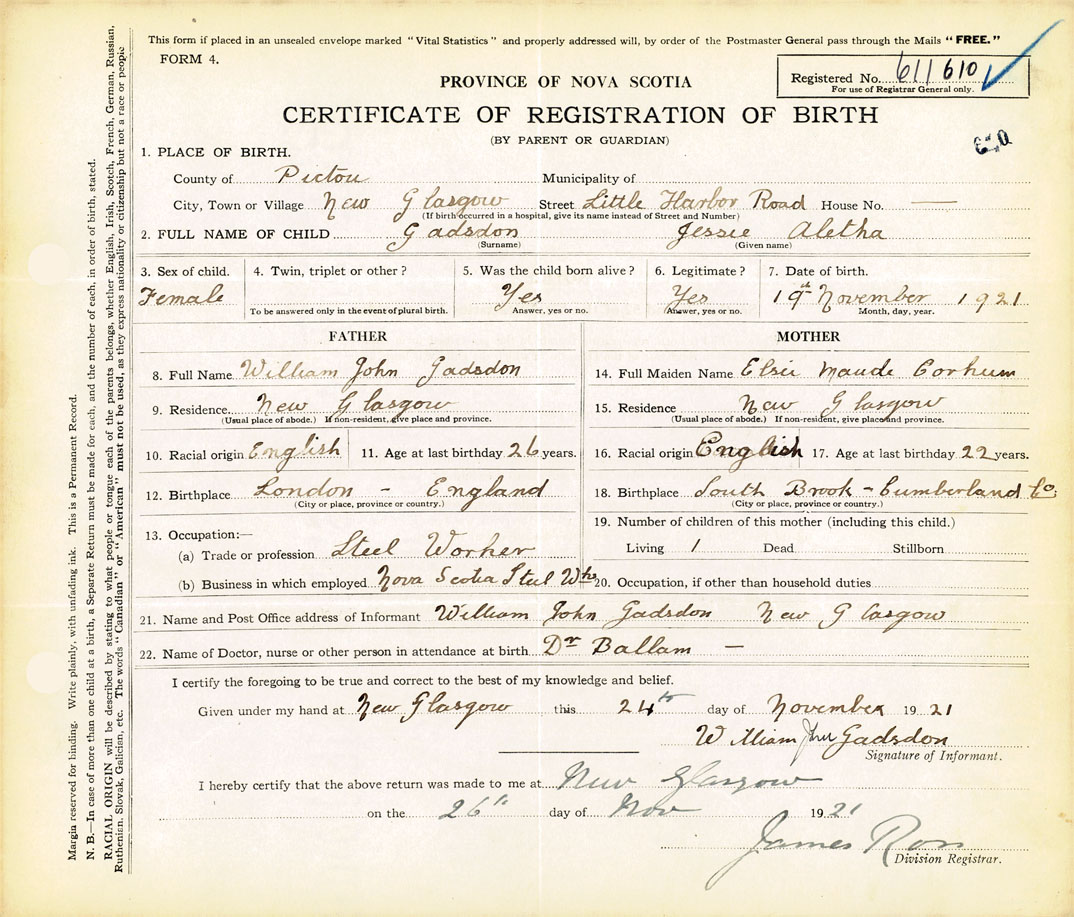 This form if placed in an unsealed envelope marked "Vital Statistics" and properly addressed will, by order of the Postmaster General pass through the Mails "FREE."
FORM 4.
Registered No. 611610
For use of Registrar General only.
PROVINCE OF NOVA SCOTIA
CERTIFICATE OF REGISTRATION OF BIRTH
(BY PARENT OR GUARDIAN)
1. PLACE OF BIRTH.
County of Pictou Municipality of
City, Town or Village New Glasgow Street Little Harbor Road House No. —
(If birth occurred in a hospital, give its name instead of Street and Number)
2. FULL NAME OF CHILD Gadsdon Jessie Aletha
(Surname) (Given name)
3. Sex of child. 4. Twin, triplet or other? 5. Was the child born alive? 6. Legitimate? 7. Date of birth.
Female Yes Yes 19th November 1921
To be answered only in the event of plural birth. Answer, yes or no. Answer, yes or no. Month, day, year.
FATHER
8. Full Name William John Gadsdon
9. Residence. New Glasgow
(Usual place of abode.) If non-resident, give place and province.
10. Racial origin English 11. Age at last birthday 26 years.
12. Birthplace London - England
(City or place, province or country.)
13. Occupation:—
(a) Trade or profession Steel Worker
(b) Business in which employed Nova Scotia Steel Wks
MOTHER
14. Full Maiden Name Elsie Maude Corhum
15. Residence New Glasgow
(Usual place of abode.) If non-resident, give place and province.
16. Racial origin English 17. Age at last birthday 22 years.
18. Birthplace South Brook - Cumberland Co.
(City or place, province or country.)
19. Number of children of this mother (including this child.)
Living 1 Dead Stillborn
20. Occupation, if other than household duties
21. Name and Post Office address of Informant William John Gadsdon New Glasgow
22. Name of Doctor, nurse or other person in attendance at birth Dr Ballam —
I certify the foregoing to be true and correct to the best of my knowledge and belief.
Given under my hand at New Glasgow this 24th day of November 1921
William John Gadsdon
Signature of Informant.
I hereby certify that the above return was made to me at New Glasgow
on the 26" day of Nov 1921
James Ross
Division Registrar.
Margin reserved for binding. Write plainly, with unfading ink. This is a Permanent Record.
N. B.—In case of more than one child at a birth, a Separate Return must be made for each, and the number of each, in order of birth, stated.
RACIAL ORIGIN will be described by stating to what people or tongue each of the parents belongs, whether English, Irish, Scotch, French, German, Russian,
Ruthenian, Slovak, Galician, etc. The words "Canadian" or "American" must not be used, as they express nationality or citizenship but not a race or people